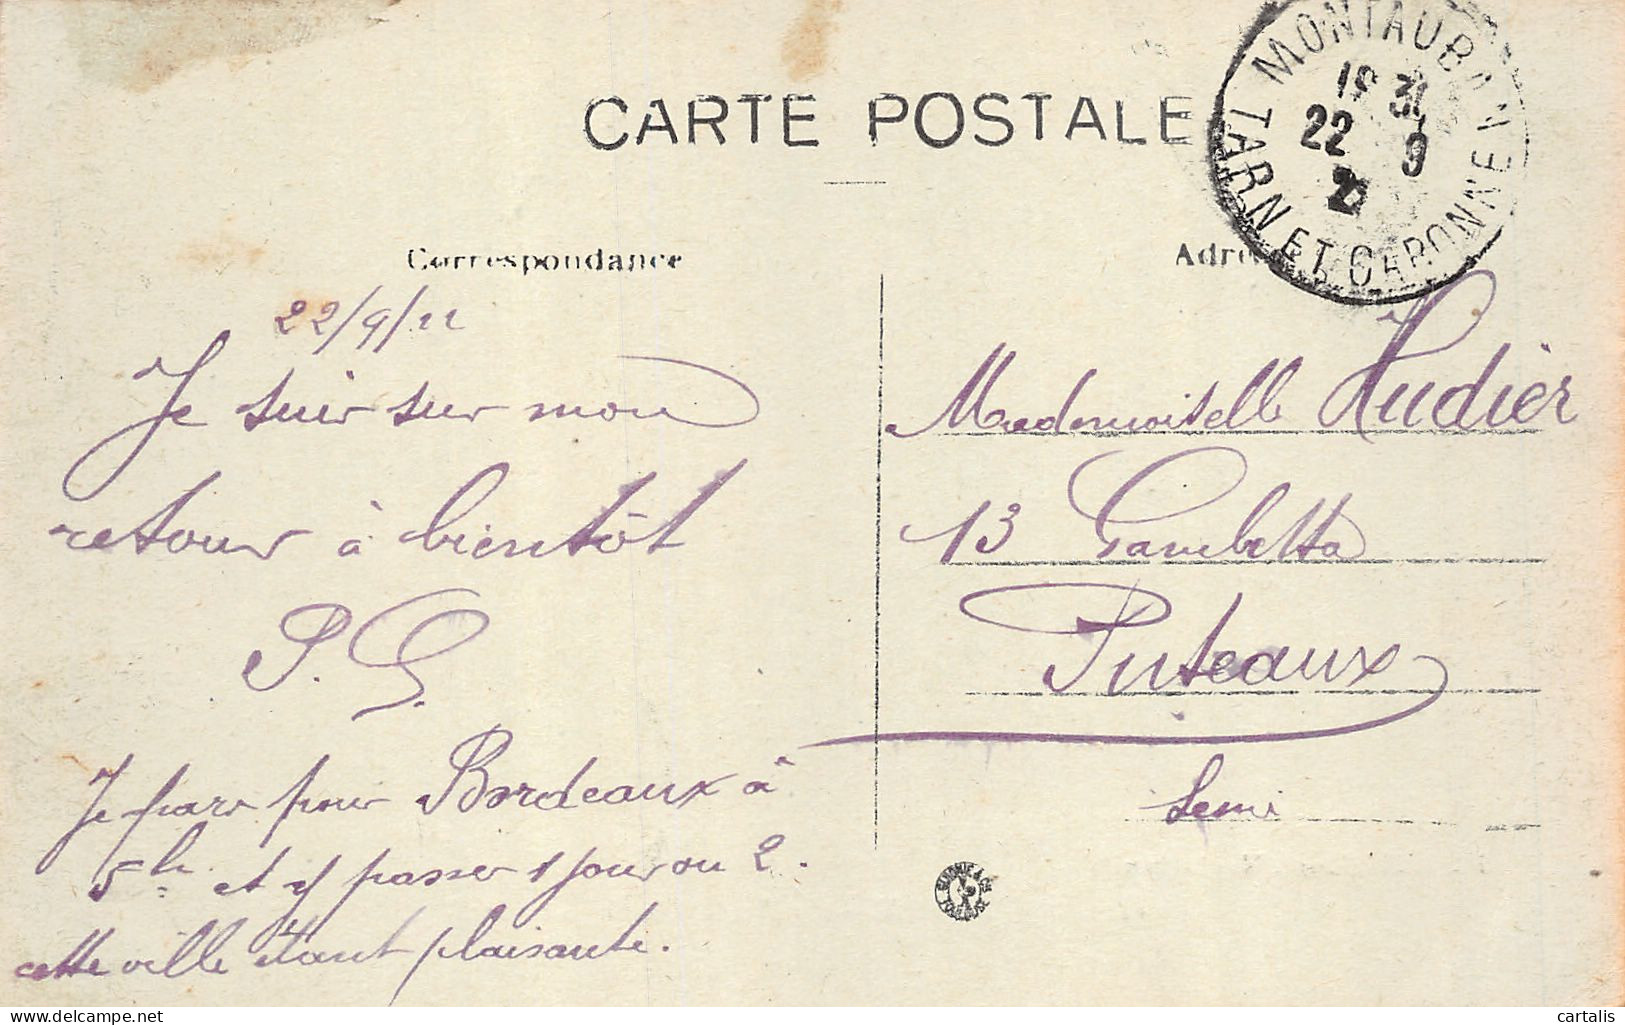 CARTE POSTALE
MONTAUBAN
TARN ET GARONNE
22 9
Correspondance
22/9/22
Je suis sur mon
retour à bientôt
P. G.
Je pars pour Bordeaux à
5h et y passer 1 jour ou 2.
cette ville étant plaisante.
Mademoiselle Audier
13 Gambetta
Puteaux
Seine
cartalis